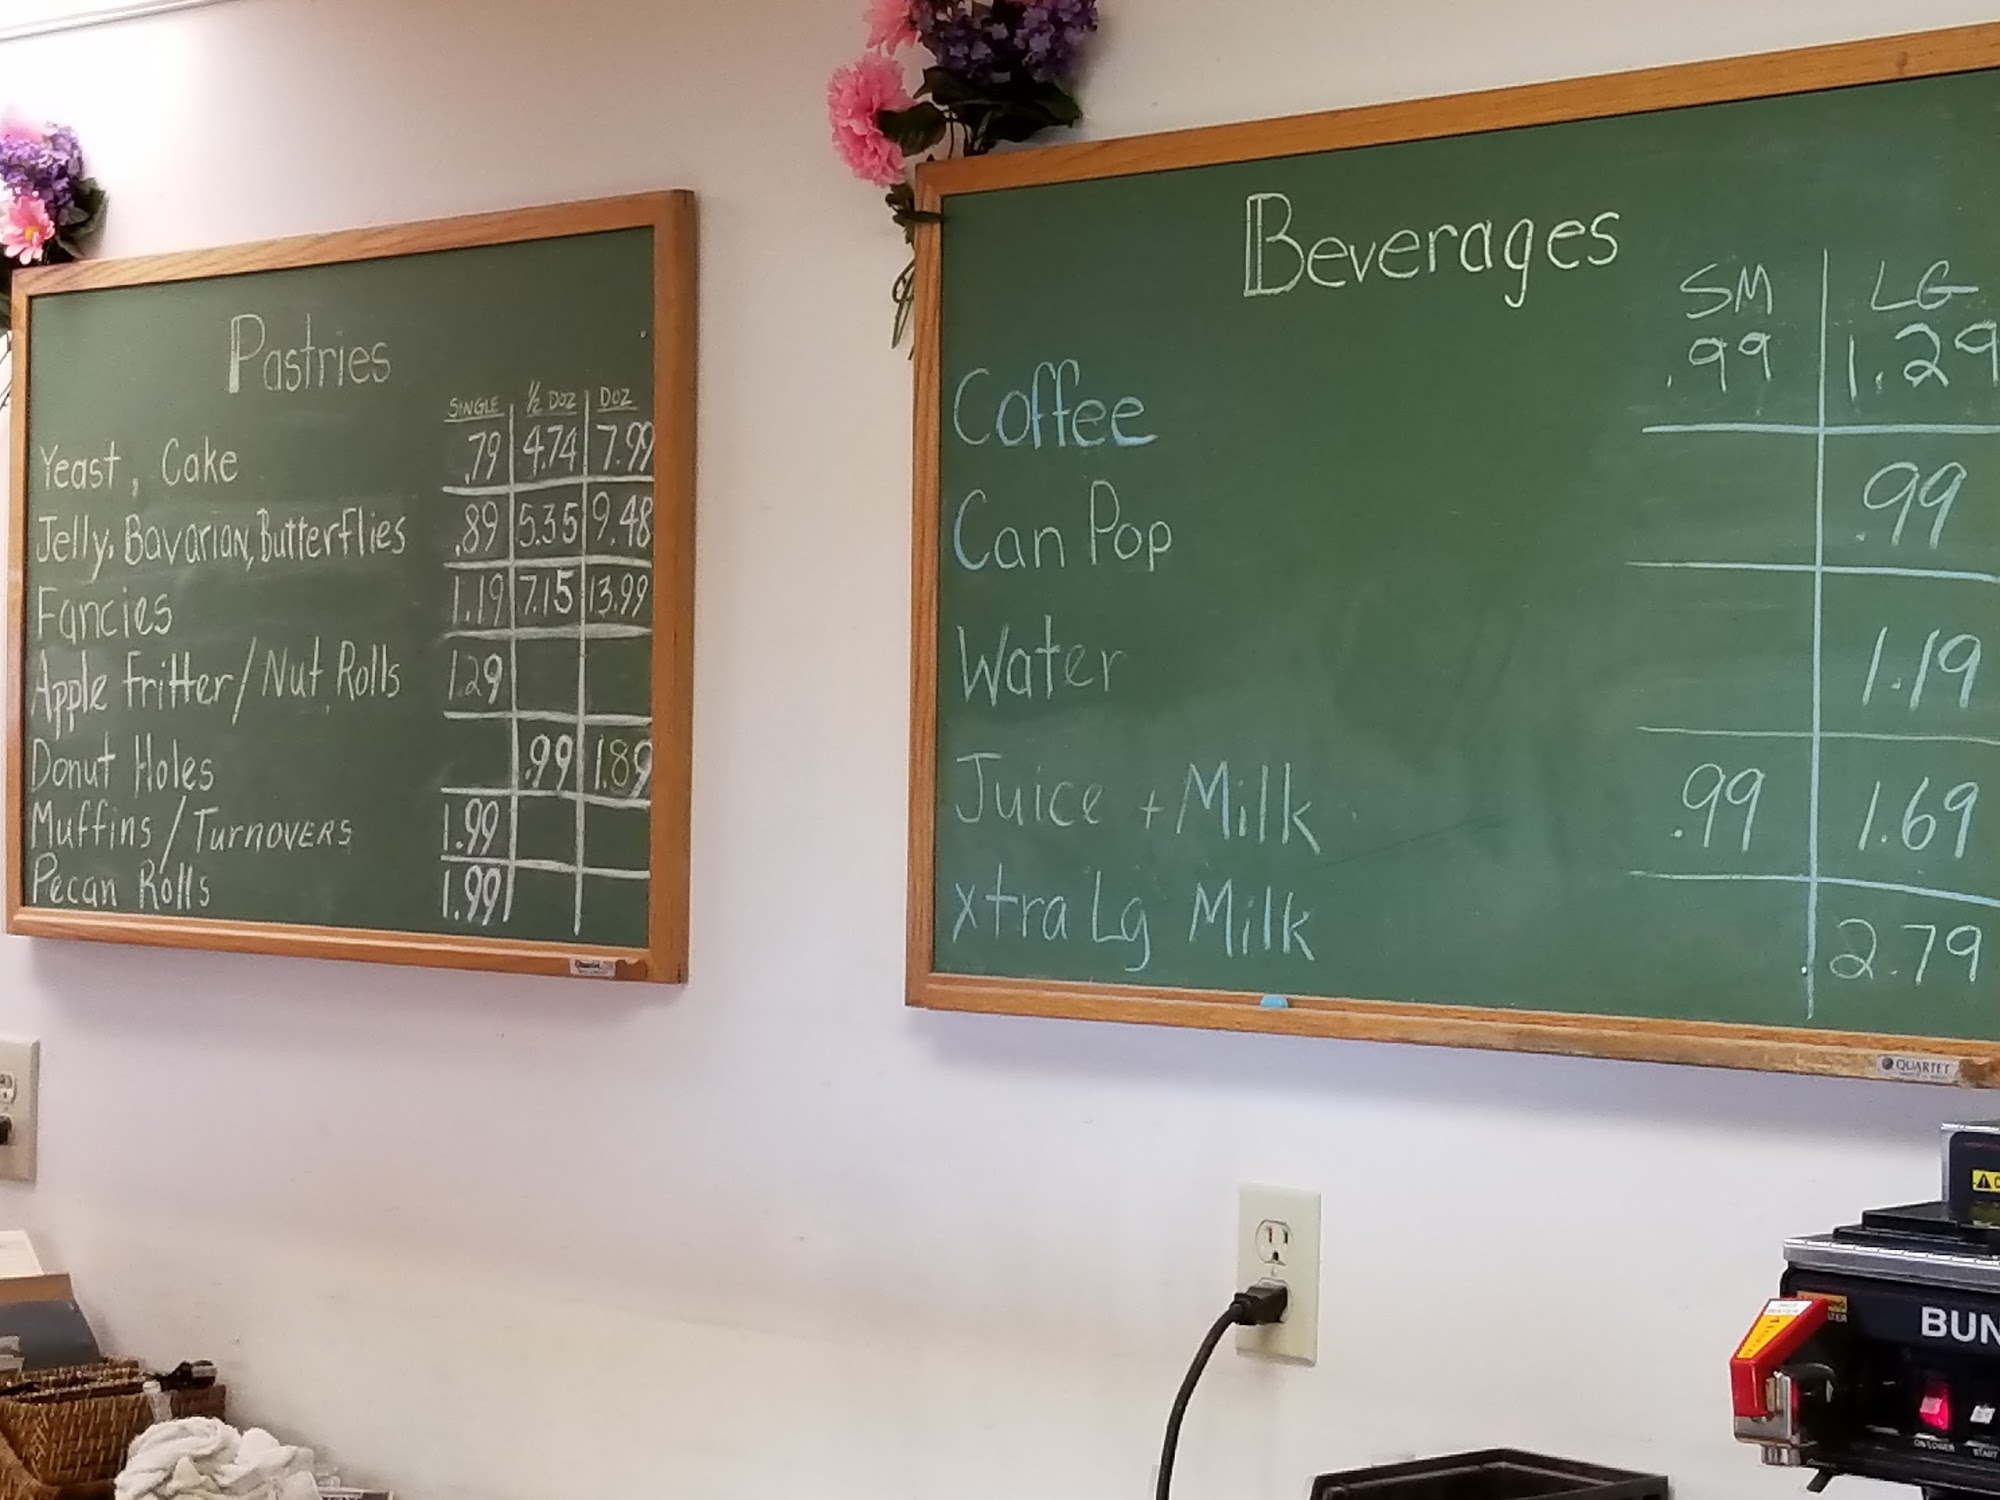 Pastries
SINGLE ½ DOZ DOZ
Yeast, Cake .79 4.74 7.99
Jelly, Bavarian, Butterflies .89 5.35 9.48
Fancies 1.19 7.15 13.99
Apple Fritter/Nut Rolls 1.29
Donut Holes .99 1.89
Muffins/TURNOVERS 1.99
Pecan Rolls 1.99
Beverages
SM LG
Coffee .99 1.29
Can Pop .99
Water 1.19
Juice + Milk .99 1.69
xtra Lg Milk 2.79
QUARTET
BUN